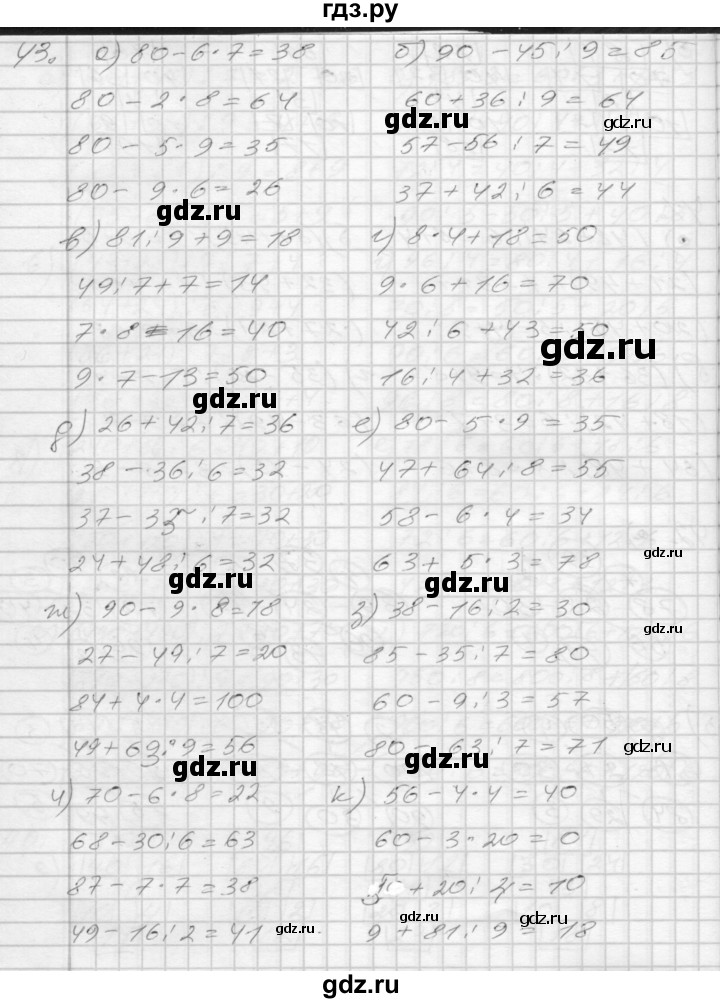 гдз.ру
43. а) 80-6·7=38 б) 90-45:9=85
80-2·8=64 60+36:9=64
gdz.ru gdz.ru
80-5·9=35 57-56:7=49
80-9·6=26 37+42:6=44
gdz.ru
в) 81:9+9=18 г) 8·4+18=50
49:7+7=14 9·6+16=70
7·8-16=40 42:6+43=50
gdz.ru
9·7-13=50 16:4+32=36
gdz.ru
д) 26+42:7=36 е) 80-5·9=35
38-36:6=32 47+64:8=55
37-35:7=32 58-6·4=34
24+48:6=32 63+5·3=78
gdz.ru
gdz.ru gdz.ru
ж) 90-9·8=18 з) 38-16:2=30
gdz.ru
27-49:7=20 85-35:7=80
84+4·4=100 60-9:3=57
49+63:9=56 80-63:7=71 gdz.ru
gdz.ru gdz.ru
и) 70-6·8=22 к) 56-4·4=40
68-30:6=63 60-3·20=0
87-7·7=38 +20:4=10
gdz.ru gdz.ru
49-16:2=41 gdz.ru 9+81:9=18
gdz.ru